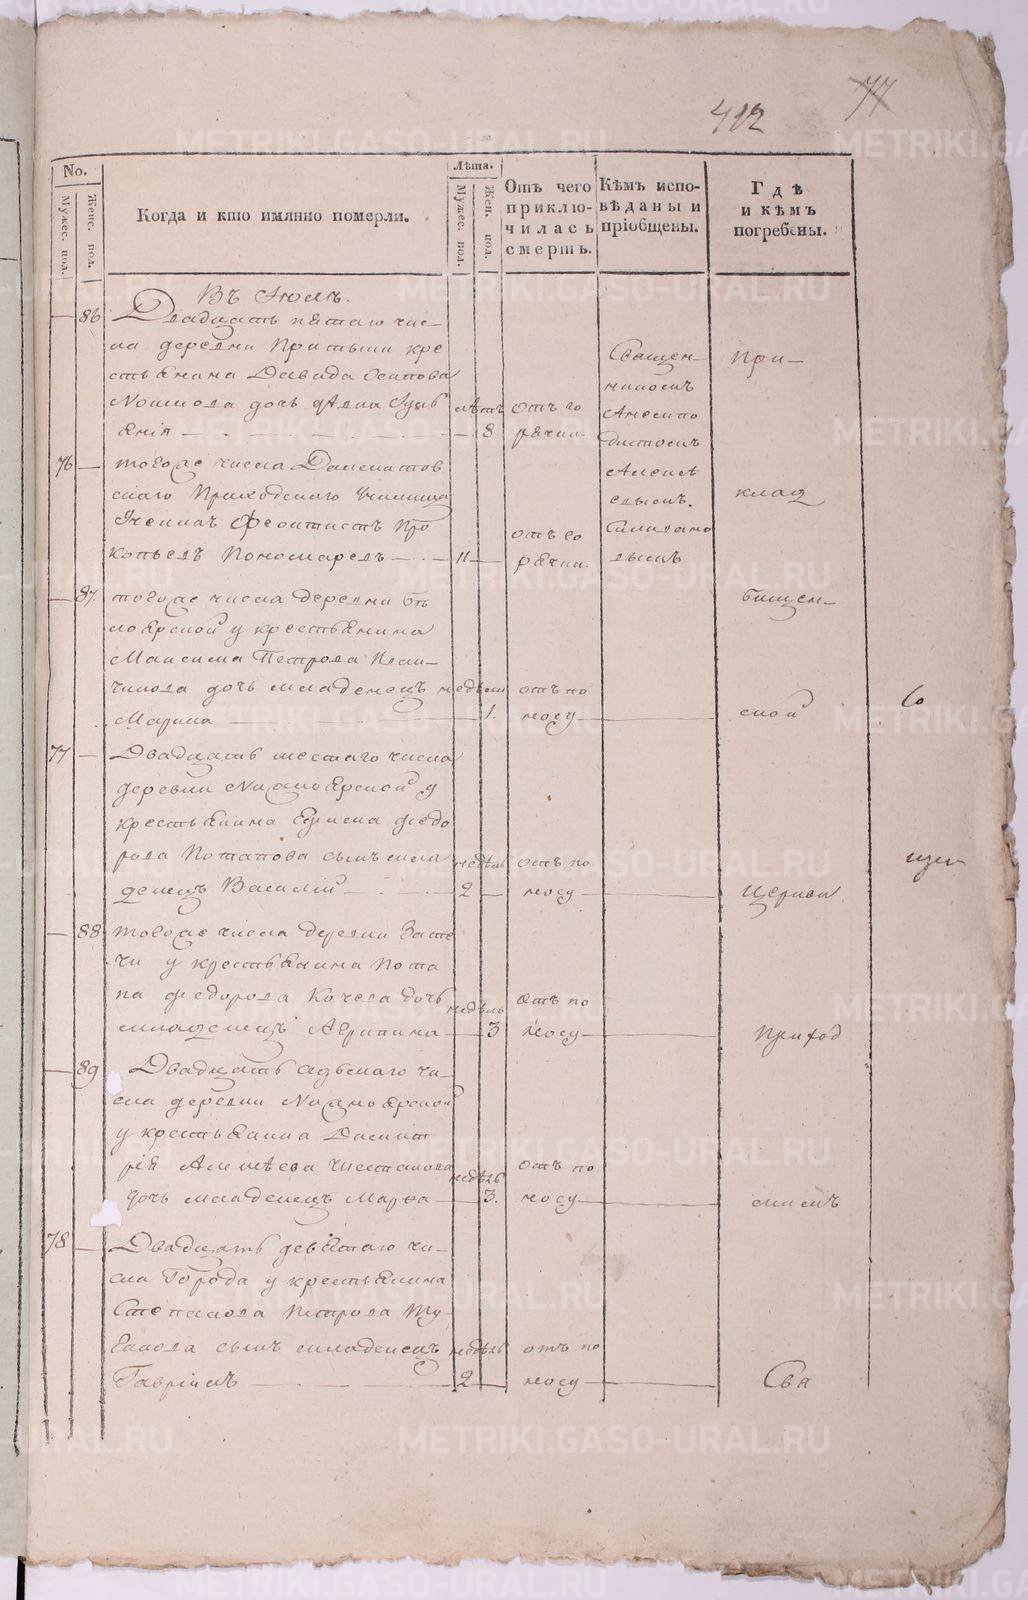 412
77
No.
Мужес. пол.
Женс. пол.
Когда и кто имянно померли.
Лѣта.
Мужес. пол.
Жен. пол.
Отъ чего
приклю-
чилась
смерть.
Кѣмъ испо-
вѣданы и
пріобщены.
Гдѣ
и кѣмъ
погребены.
Въ Іюлѣ.
86
Двадцать пятаго чис-
ла деревни Притыки кре
стьянина Давида Осипова
дочь
лѣтъ
8
отъ го
рячки.
Священ-
никомъ
При-
76
тогоже числа Далматов
скаго Приходскаго Училища
Ученикъ Феоктистъ Про
копьевъ Пономаревъ
11
отъ го
рячки.
Алексѣ
евымъ.
клад
87.
тогоже числа деревни Бѣ
лоярской у крестьянина
Максима Петрова
дочь младенецъ
Марина
недѣли
1.
отъ по
носу
бищен-
ской
77
Двадцать шестаго числа
деревни Нижноярской у
крестьянина Федо
рова Потапова сынъ мла
денецъ Василій
недѣль
2
отъ по
носу
Церкви
88
тогоже числа деревни Зате
чи у крестьянина Пота
па Федорова Кочева дочь
младенецъ Агрипина
недѣль
3
отъ по
носу
Приход
89
Двадцать седьмаго чи-
сла деревни Нижноярской
у крестьянина Димит
рія Алексѣева
дочь младенецъ Марѳа
недѣль
3.
отъ по
носу
скимъ
78
Двадцать девятаго чи-
сла Города у крестьянина
Петрова
сынъ младенецъ
Гавріилъ
недѣль
2
отъ по
носу
Свя
METRIKI.GASO-URAL.RU